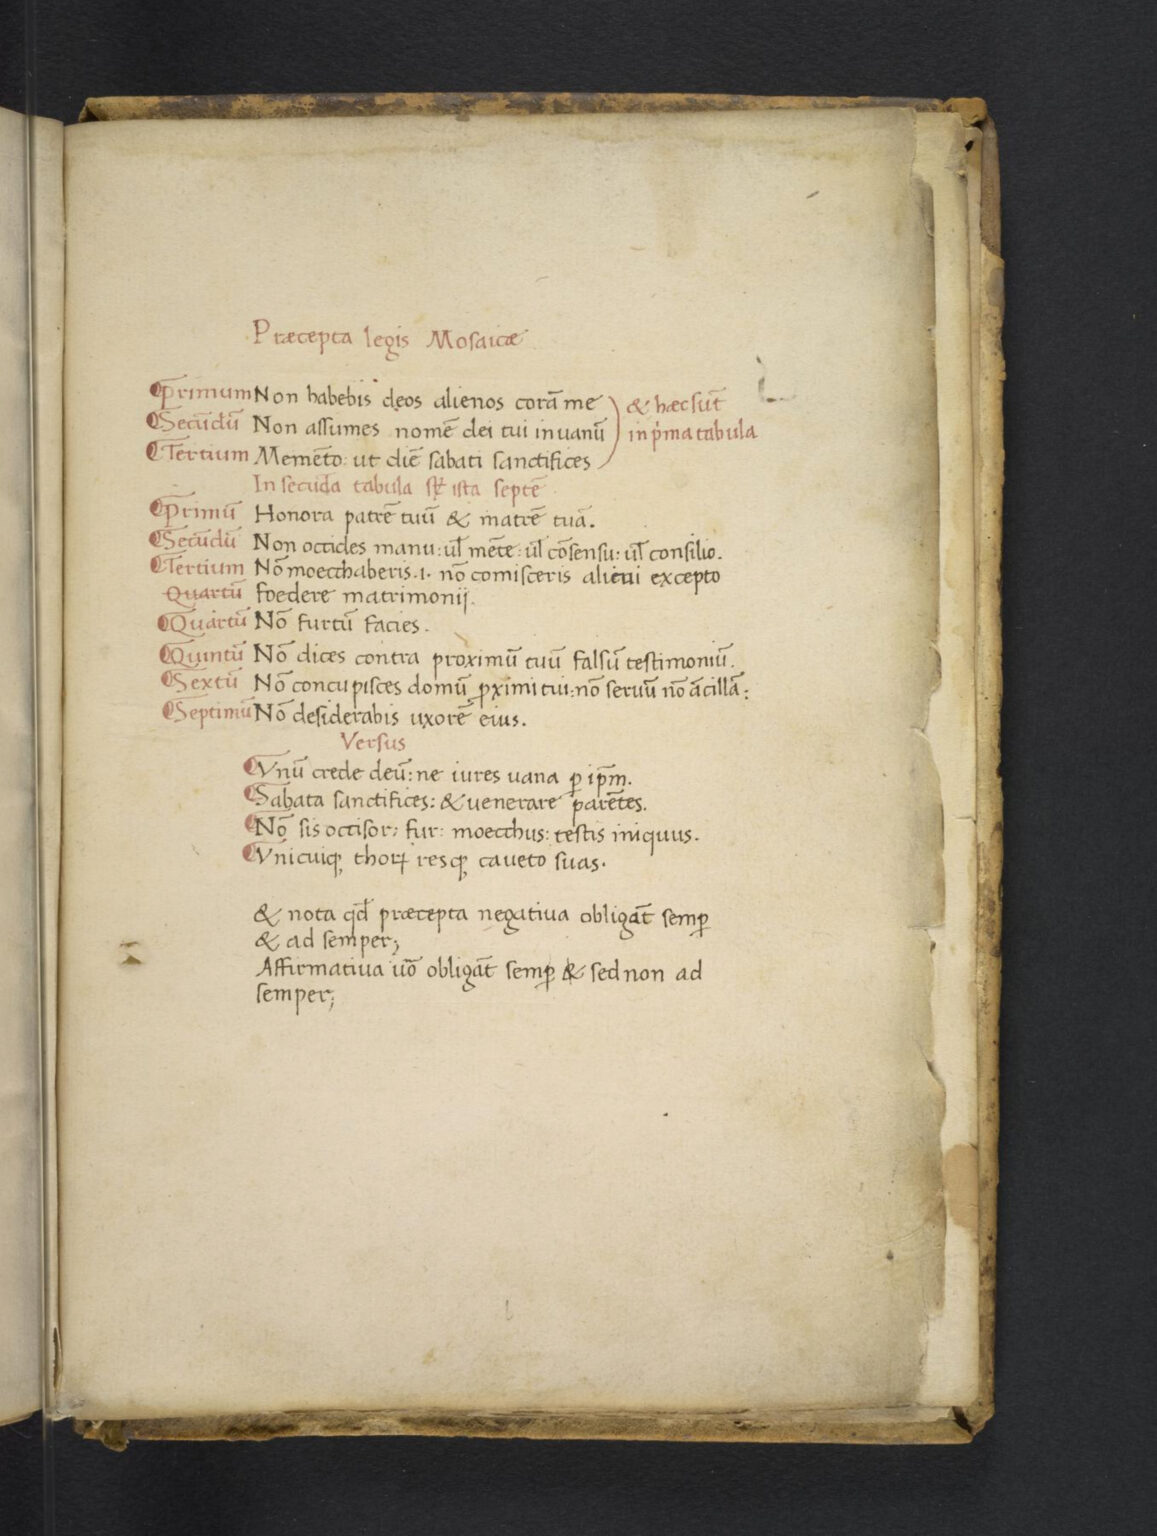 Præcepta legis Mosaicæ
Primum Non habebis deos alienos corā me & hæc sūt
Secūdū Non assumes nomē dei tui in uanū in p̍ma tabula
Tertium Memēto: ut diē sabati sanctifices
In secūda tabula sūt ista septē
Primū Honora patrē tuū & matrē tuā.
Secūdū Non occides manu: ul̄ mēte: ul̄ cōsensu: ul̄ consilio.
Tertium Nō moecchaberis .i. nō comisceris alicui excepto
Quartū foedere matrimonij.
Quartū Nō furtū facies.
Quintū Nō dices contra proximū tuū falsū testimoniū.
Sextū Nō concupisces domū ꝑximi tui: nō seruū nō ācillā:
Septimū Nō desiderabis uxorē eius.
Versus
Vnū crede deū: ne iures uana ꝑ ip̄m.
Sabata sanctifices: & uenerare parētes.
Nō sis occisor: fur: moecchus: testis iniquus.
Vnicuiqꝫ thorꝝ resqꝫ caueto suas.
& nota qd̄ præcepta negatiua obligāt semꝑ
& ad semper;
Affirmatiua uō obligāt semꝑ & sed non ad
semper;